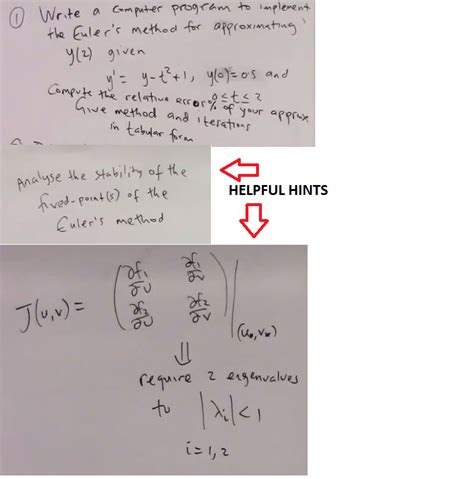 ① Write a computer program to implement
the Euler's method for approximating
y(2) given
y' = y-t²+1, y(0)=0.5 and
0≤t≤2
Compute the relative error% of your approx
Give method and iterations
in tabular form
Analyse the stability of the
fixed-point(s) of the
Euler's method
HELPFUL HINTS
J(u,v) = ( ∂f₁/∂u ∂f₁/∂v
∂f₂/∂u ∂f₂/∂v ) |(u*,v*)
⇓
require 2 eigenvalues
to |λᵢ|<1
i=1,2